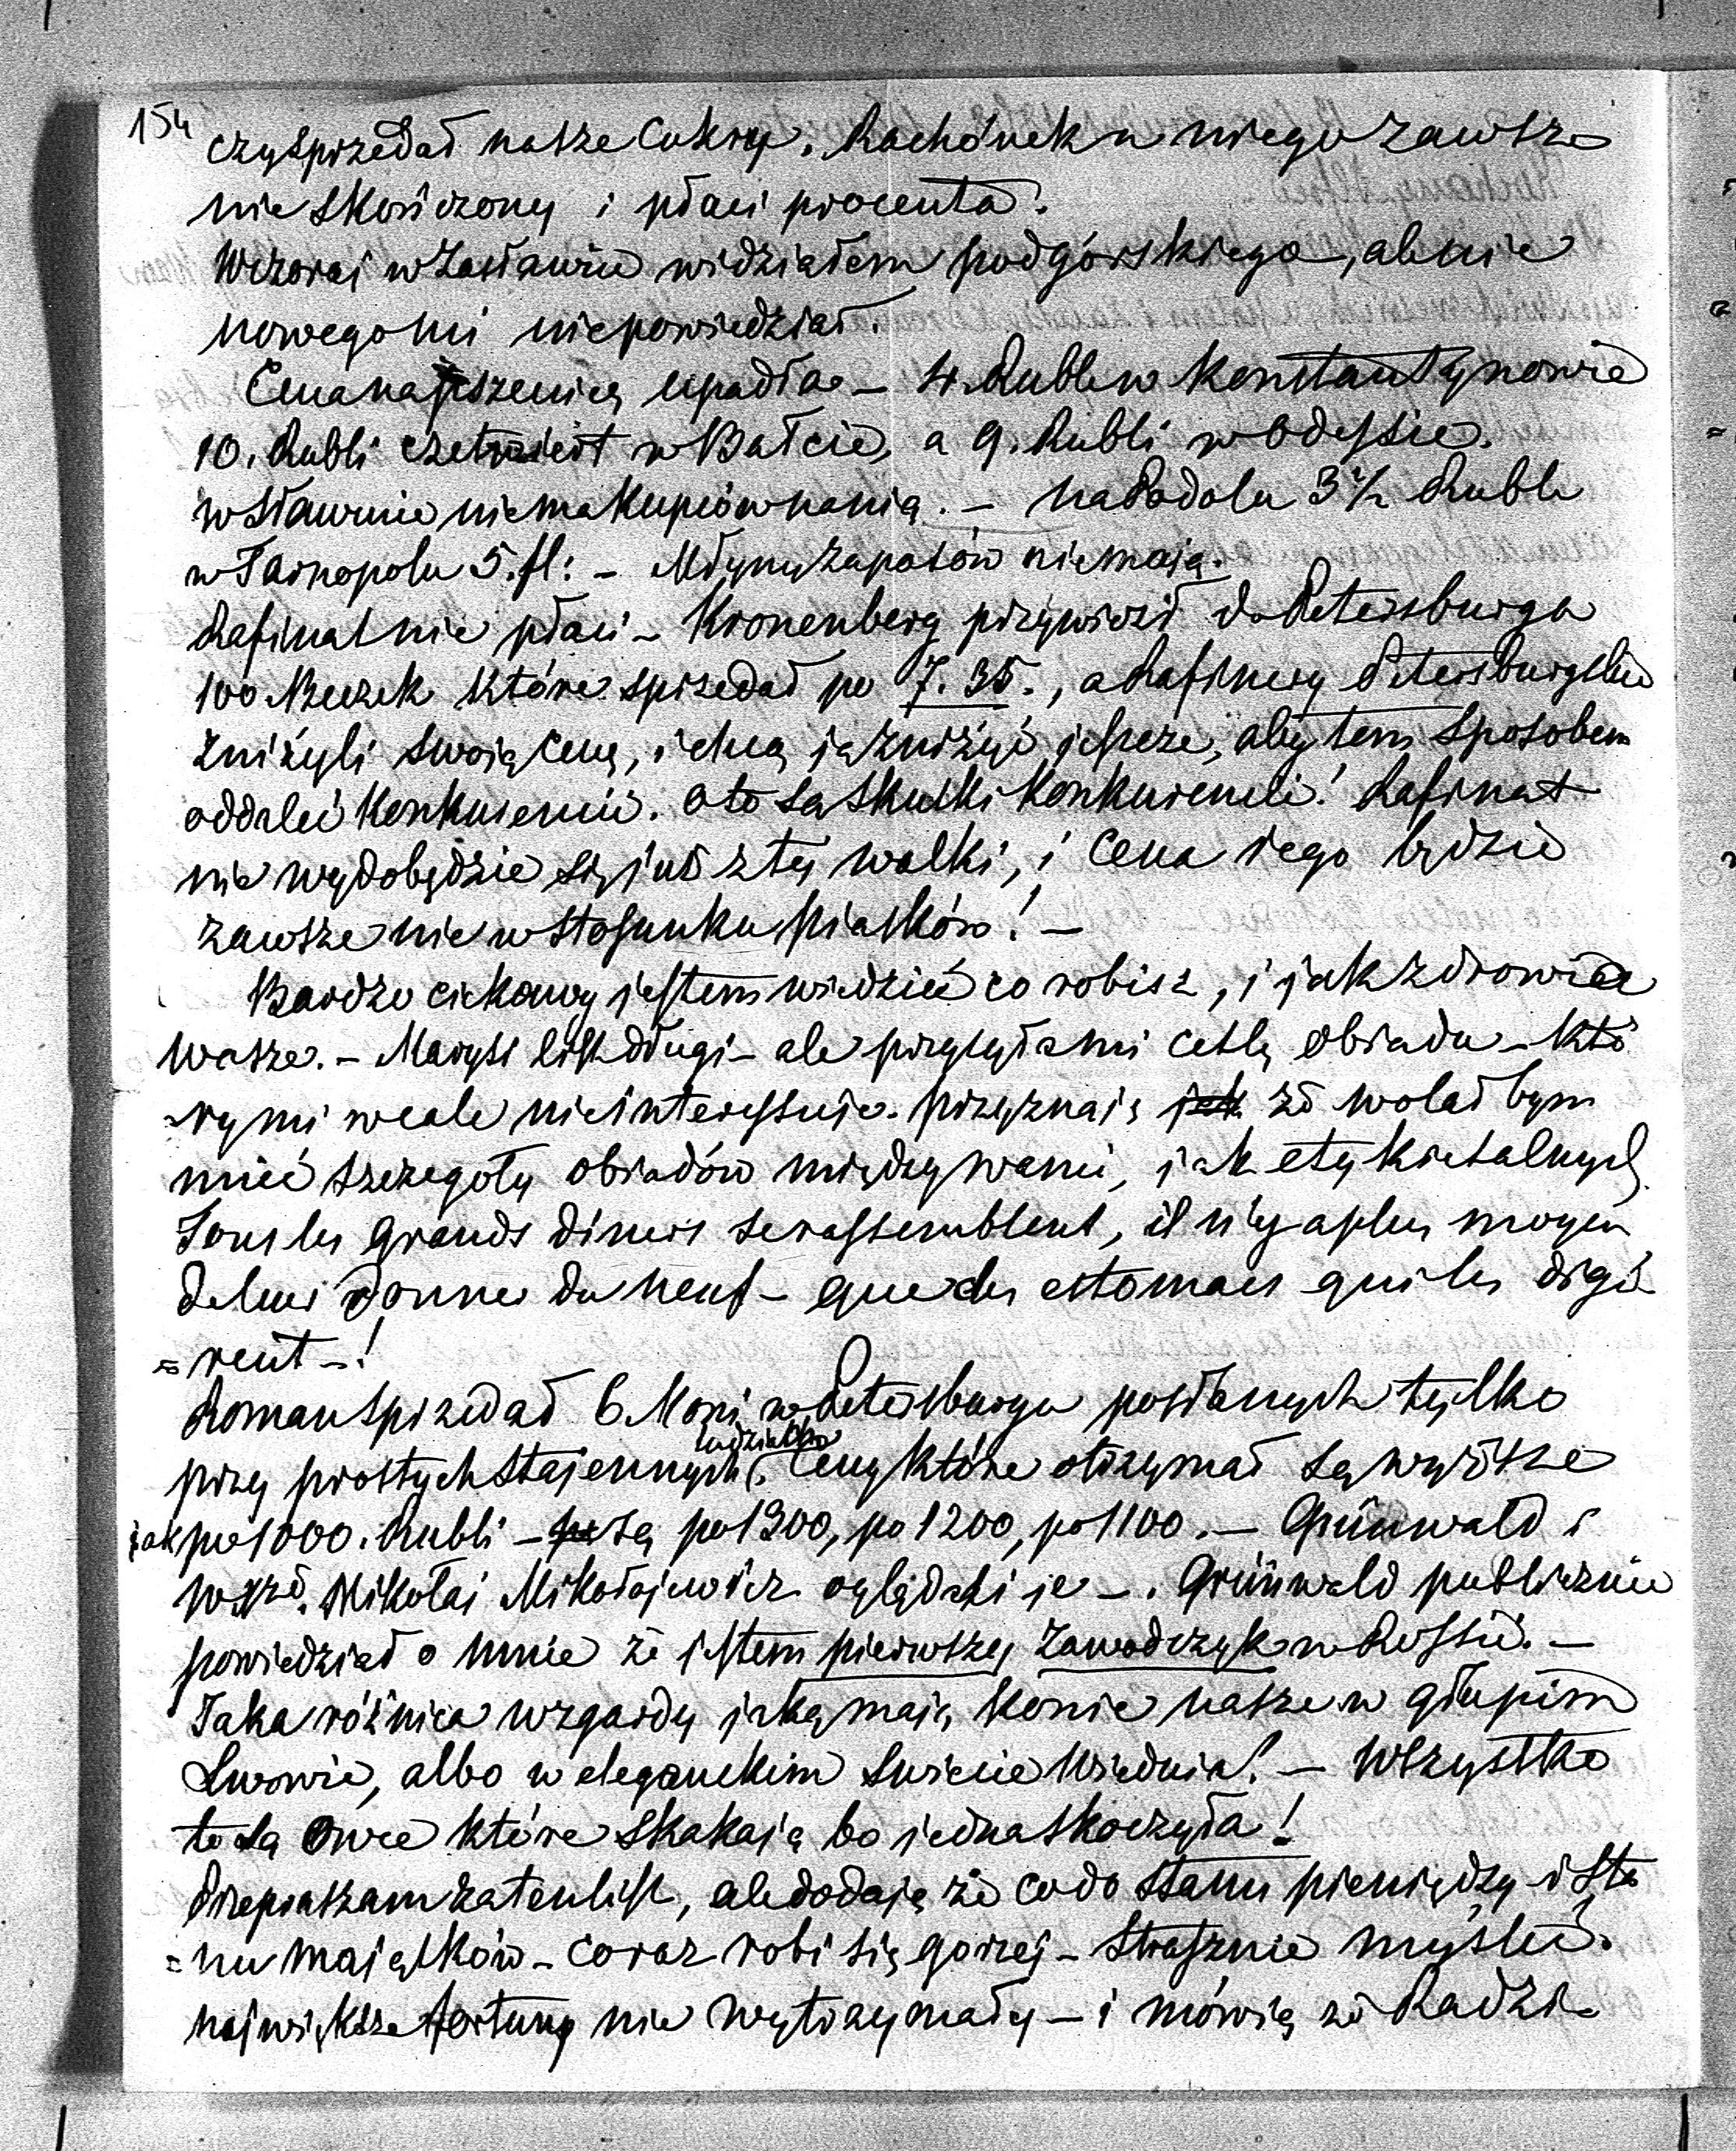 154
czy sprzedał nasze Cukry. Rachónek u niego zawsze
nie skończony i płaci procenta.
Wczoraj w Zasławiu widziałem podgórskiego, ale nic
nowego mi niepowiedział.
Cena na pszenicę upadła – 4. Ruble w Konstantynowie
10. Rubli czetwiert w Bałcie, a 9. Rubli w Odessie.
w Sławucie niema kupców na nią. – na Podolu 3 1/2 Ruble
w Tarnopolu 5. fl: – Młyny zapasów niemają.
Rafinat nie płaci – Kronenberg przywiózł do Petersburga
100 Beczek które sprzedał po 7. 35., a Rafinery Petersburgskie
zniżyli swoją cenę, i chcą ją zniżyć jeszcze, aby tem sposobem
oddalić Konkurencie. Oto są skutki Konkurencii! Rafinat
nie wydobędzie się już z tej walki, i Cena jego będzie
zawsze nie w stosunku piasków! –
Bardzo ciekawy jestem wiedzieć co robisz, i jak zdrowie
wasze. – Marysi list długi – ale przysyła mi cetlę obiadu – któ
=ry mi wcale nieinteressuje. przyznaję jak że wolał bym
mieć szczegóły obiadów między wami, jak etykietalnych
Tous les grands diners se rassemblent, il n'y a plus moyen
de leur donner du neuf – que des estomacs qui les digè
=rent –!
Roman sprzedał 6 Koni w Petersburgu posłanych tylko
ludziach
przy prostych stajennych. Ceny które otrzymał są wyższe
jak po 1000. Rubli – po są po 1300, po 1200, po 1100. – Grünwald i
W. Xżę. Mikołaj Mikołajewicz oglądali je –. Grünwald publicznie
powiedział o mnie że jestem pierwszy zawodczyk w Rossii. –
Jaka różnica wzgardy jaką mają konie nasze w głupim
Lwowie, albo w eleganckim świecie Wiednia! – Wszystko
to są Owce które skakają bo jedna skoczyła!
Przepraszam za ten list, ale dodaję że co do stanu pieniędzy i sta
=nu majątków – coraz robi się gorzej – strasznie myśleć.
największe fortuny nie wytrzymały – i mówią że Radzi-